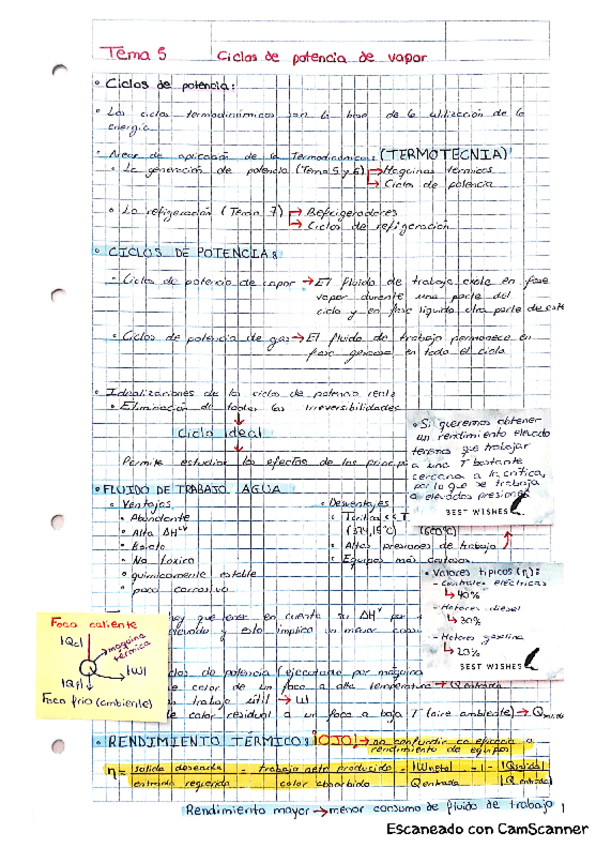 Tema 5 Ciclos de potencia de vapor
• Ciclos de potencia:
• Los ciclos termodinámicos son la base de la utilización de la energía
• Areas de aplicación de la Termodinámica: (TERMOTECNIA)
• La generación de potencia (Tema 5 y 6) → Maquinas térmicas
→ Ciclos de potencia
• La refrigeración (Tema 7) → Refrigeradores
→ Ciclos de refrigeración
• CICLOS DE POTENCIA:
- Ciclos de potencia de vapor → El fluido de trabajo existe en fase
vapor durante una parte del
ciclo y en fase líquida otra parte de este
• Ciclos de potencia de gas → El fluido de trabajo permanece en
fase gaseosa en todo el ciclo
• Idealizaciones de los ciclos de potencia reales
• Eliminación de todas las irreversibilidades
Ciclo ideal
Permite estudiar los efectos de los
• Si queremos obtener
un rendimiento elevado
tenemos que trabajar
a una T bastante
cercana a la crítica,
por lo que se trabaja
a elevadas presiones
BEST WISHES
• FLUIDO DE TRABAJO AGUA
• Ventajas
• Abundante
• Alto ΔH
• Barato
• No toxico
• químicamente estable
• poco corrosivo
• Desventajas
(374,15°C) (600°C)
• Altas presiones de trabajo
• Equipos más costosos
• Valores típicos (η):
- Centrales eléctricas
↳ 40%
- Motores diesel
↳ 30%
- Motores gasolina
↳ 25%
BEST WISHES
hay que tener en cuenta su ΔH
elevado y esto implica un mayor
Foco caliente
|Qc|
maquina
térmica
|W|
|Qf|
Foco frio (ambiente)
de potencia (ejecutado por
calor de un foco a alta temperatura → Q entrada
trabajo útil → W
calor residual a un foco a baja T (aire ambiente) → Q
• RENDIMIENTO TÉRMICO: ¡OJO! → no confundir con eficacia o
rendimiento de equipos
η = salida deseada / entrada requerida = trabajo neto producido / calor absorbido = |W neto| / Q entrada = 1 - |Q salida| / |Q entrada|
Rendimiento mayor → menor consumo de fluido de trabajo 1
Escaneado con CamScanner